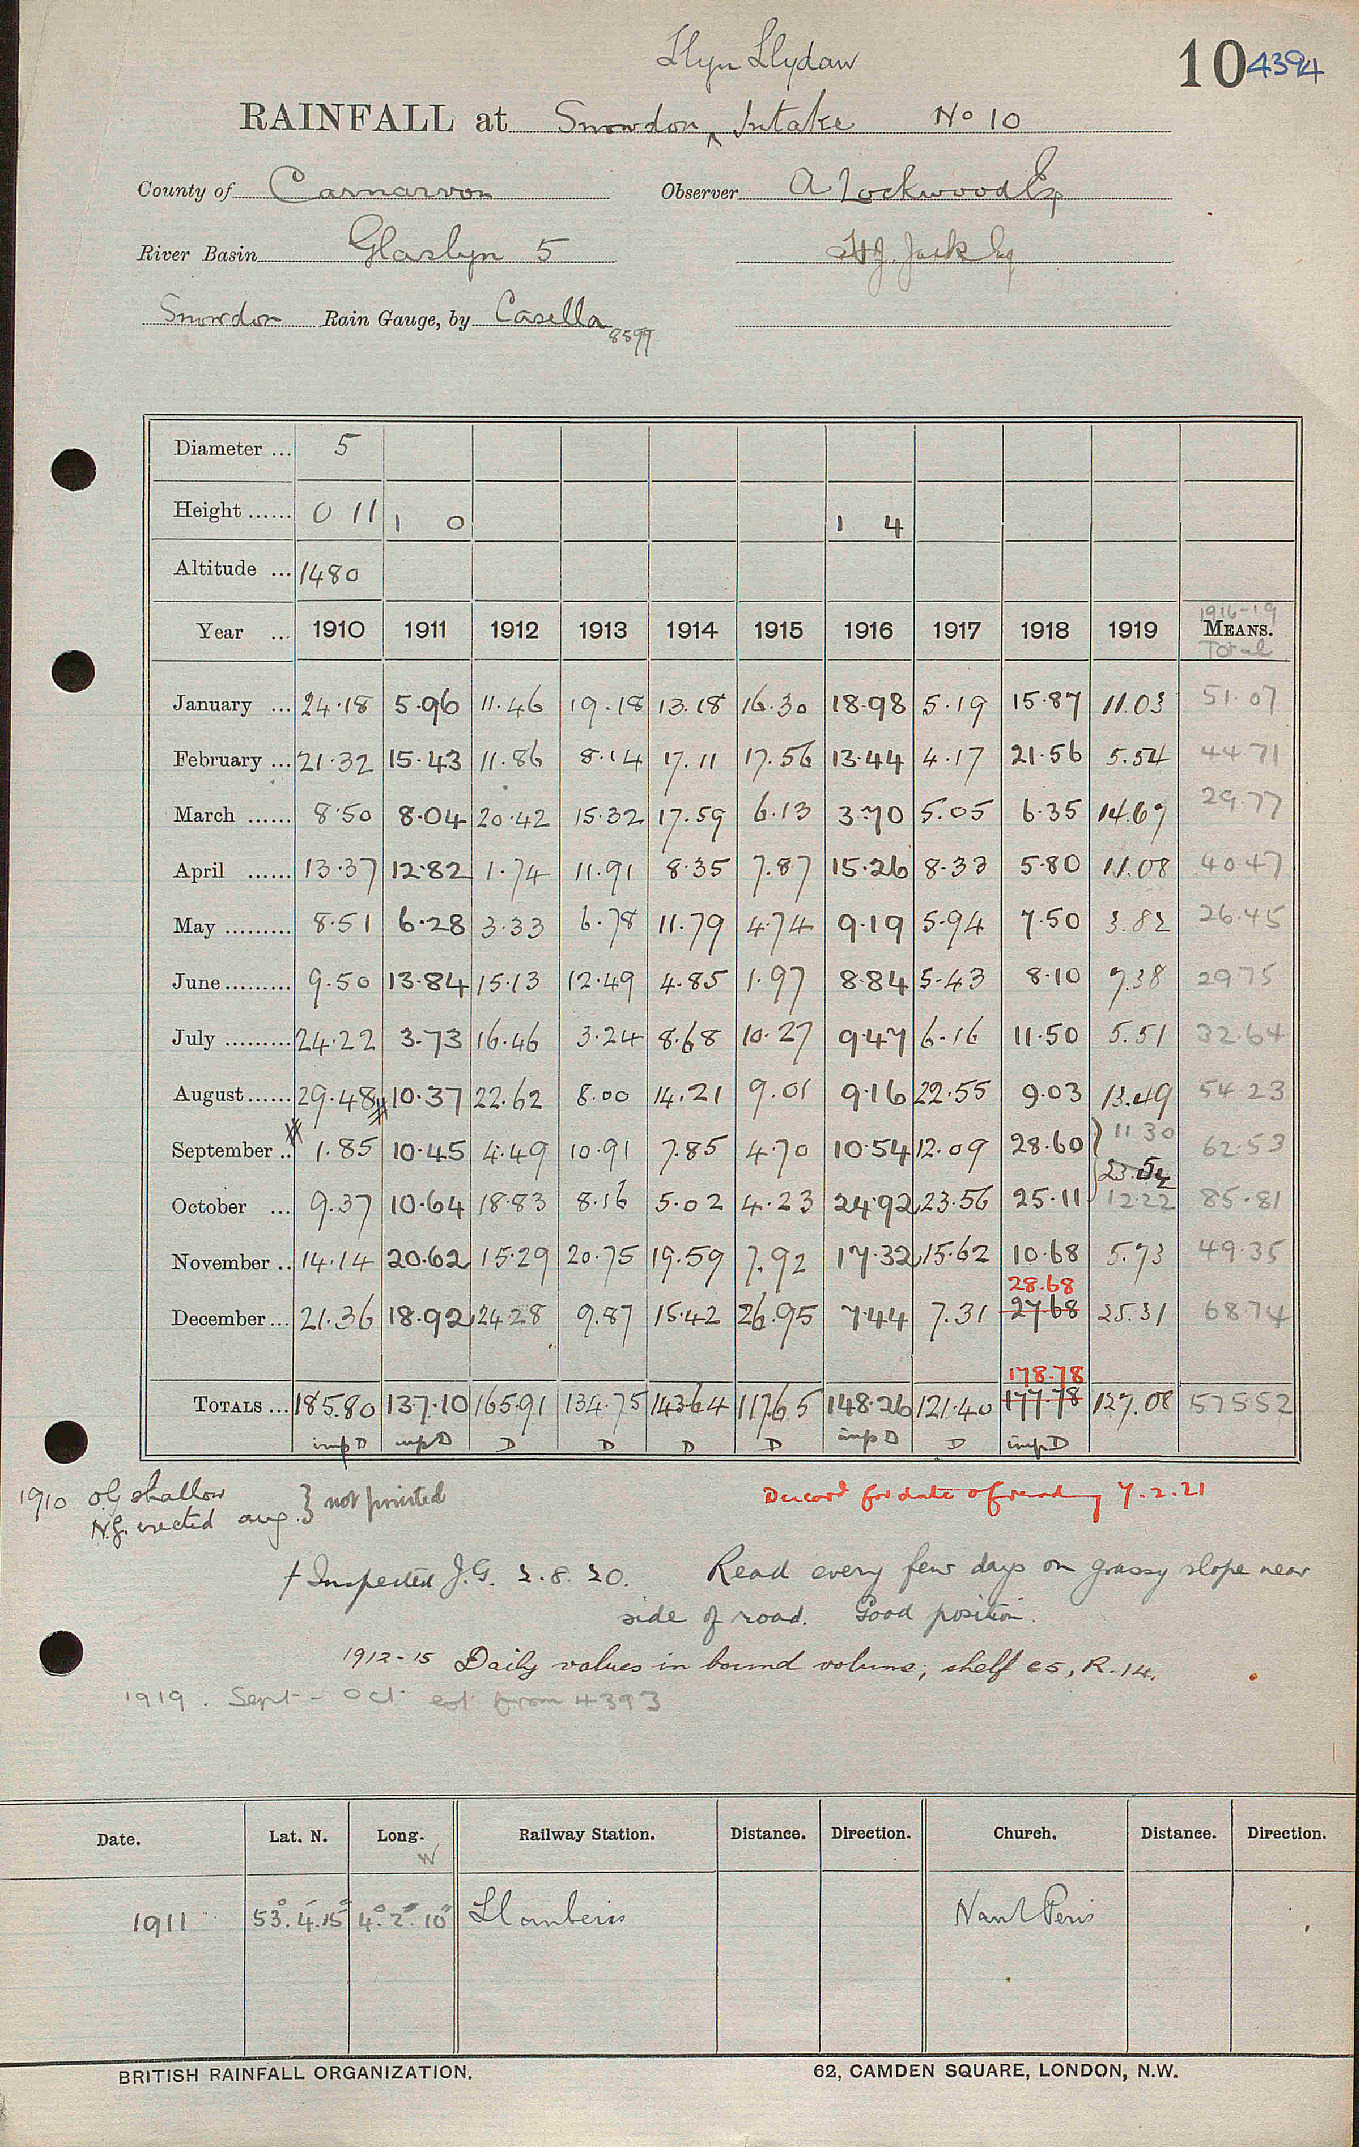 Llyn Llydaw
10 4394
RAINFALL at Snowdon ^ Intake No 10
County of Carnarvon Observer A Lockwood Esq
River Basin Glaslyn 5 H J. Jack Esq
Snowdon Rain Gauge, by Casella 8599
Diameter ... 5
Height ...... 0 11 1 0 1 4
Altitude ... 1480
1916-19
Year ... 1910 1911 1912 1913 1914 1915 1916 1917 1918 1919 MEANS.
Total
January ... 24.18 5.96 11.46 19.18 13.18 16.30 18.98 5.19 15.87 11.03 51.07
February ... 21.32 15.43 11.86 8.14 17.11 17.56 13.44 4.17 21.56 5.54 44.71
March ...... 8.50 8.04 20.42 15.32 17.59 6.13 3.70 5.05 6.35 14.67 29.77
April ...... 13.37 12.82 1.74 11.91 8.35 7.87 15.26 8.33 5.80 11.08 40.47
May ......... 8.51 6.28 3.33 6.78 11.79 4.74 9.19 5.94 7.50 3.82 26.45
June ......... 9.50 13.84 15.13 12.49 4.85 1.97 8.84 5.43 8.10 7.38 29.75
July ......... 24.22 3.73 16.46 3.24 8.68 10.27 9.47 6.16 11.50 5.51 32.64
August ...... 29.48 10.37 22.62 8.00 14.21 9.01 9.16 22.55 9.03 13.49 54.23
September .. 1.85 10.45 4.49 10.91 7.85 4.70 10.54 12.09 28.60 11.30 62.53
23.52
October ... 9.37 10.64 18.83 8.16 5.02 4.23 24.92 23.56 25.11 12.22 85.81
November .. 14.14 20.62 15.29 20.75 19.59 7.92 17.32 15.62 10.68 5.73 49.35
28.68
December ... 21.36 18.92 24.28 9.87 15.42 26.95 7.44 7.31 27.68 25.31 68.74
178.78
TOTALS ... 185.80 137.10 165.91 134.75 143.64 117.65 148.26 121.40 177.78 127.08 575.52
imp D imp D D D D D imp D D imp D
1910 old shallow
N.G. erected aug. } not printed
for date of reading 7.2.21
† Inspected J.G. 2.8.20. Read every few days on grassy slope near
side of road. Good position.
1912-15 Daily values in bound volume, shelf c5, R.14.
1919. Sept - Oct est from 4393
Date. Lat. N. Long. W Railway Station. Distance. Direction. Church. Distance. Direction.
1911 53° 4' 15" 4° 2' 10" Llanberis Nant Peris
BRITISH RAINFALL ORGANIZATION. 62, CAMDEN SQUARE, LONDON, N.W.